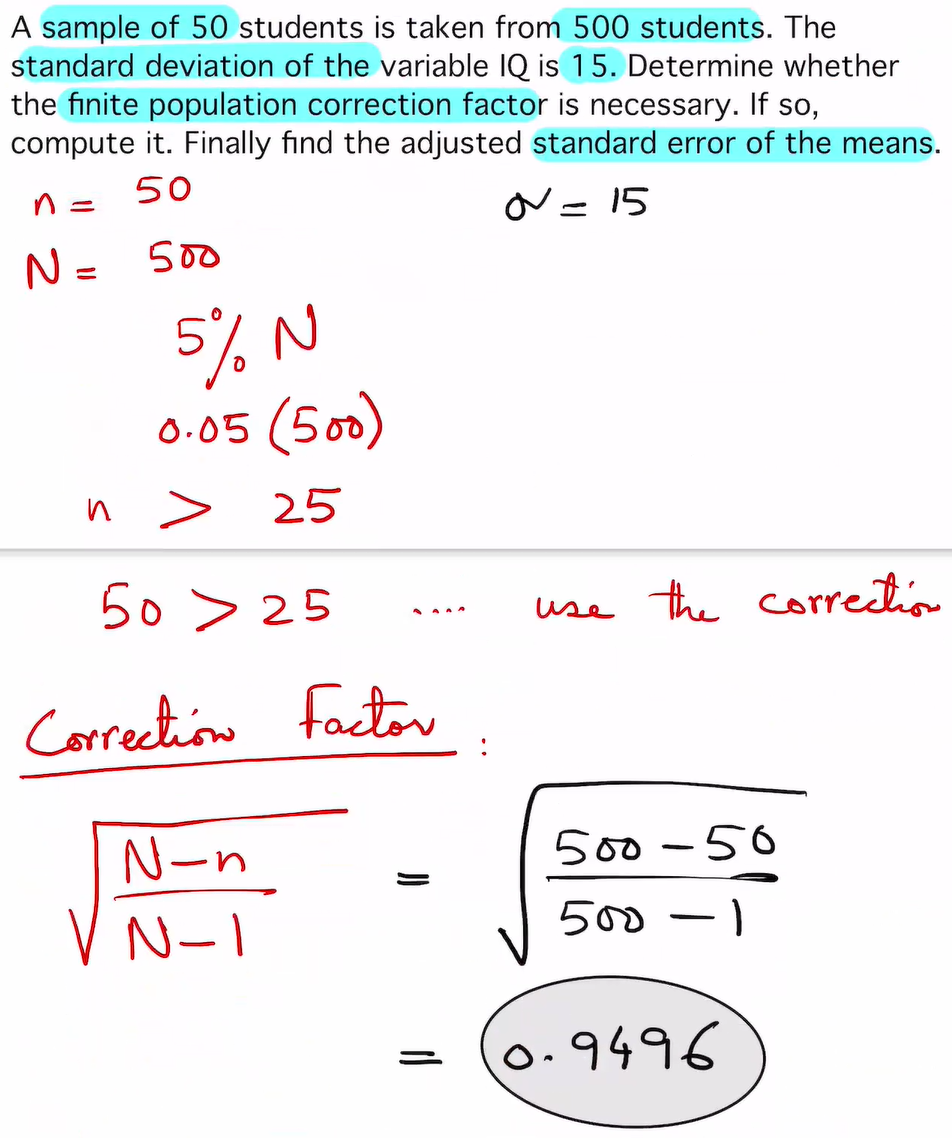 A sample of 50 students is taken from 500 students. The
standard deviation of the variable IQ is 15. Determine whether
the finite population correction factor is necessary. If so,
compute it. Finally find the adjusted standard error of the means.
n = 50
σ = 15
N = 500
5% N
0.05 (500)
n > 25
50 > 25 .... use the correction
Correction Factor :
√((N-n)/(N-1)) = √((500-50)/(500-1))
= 0.9496